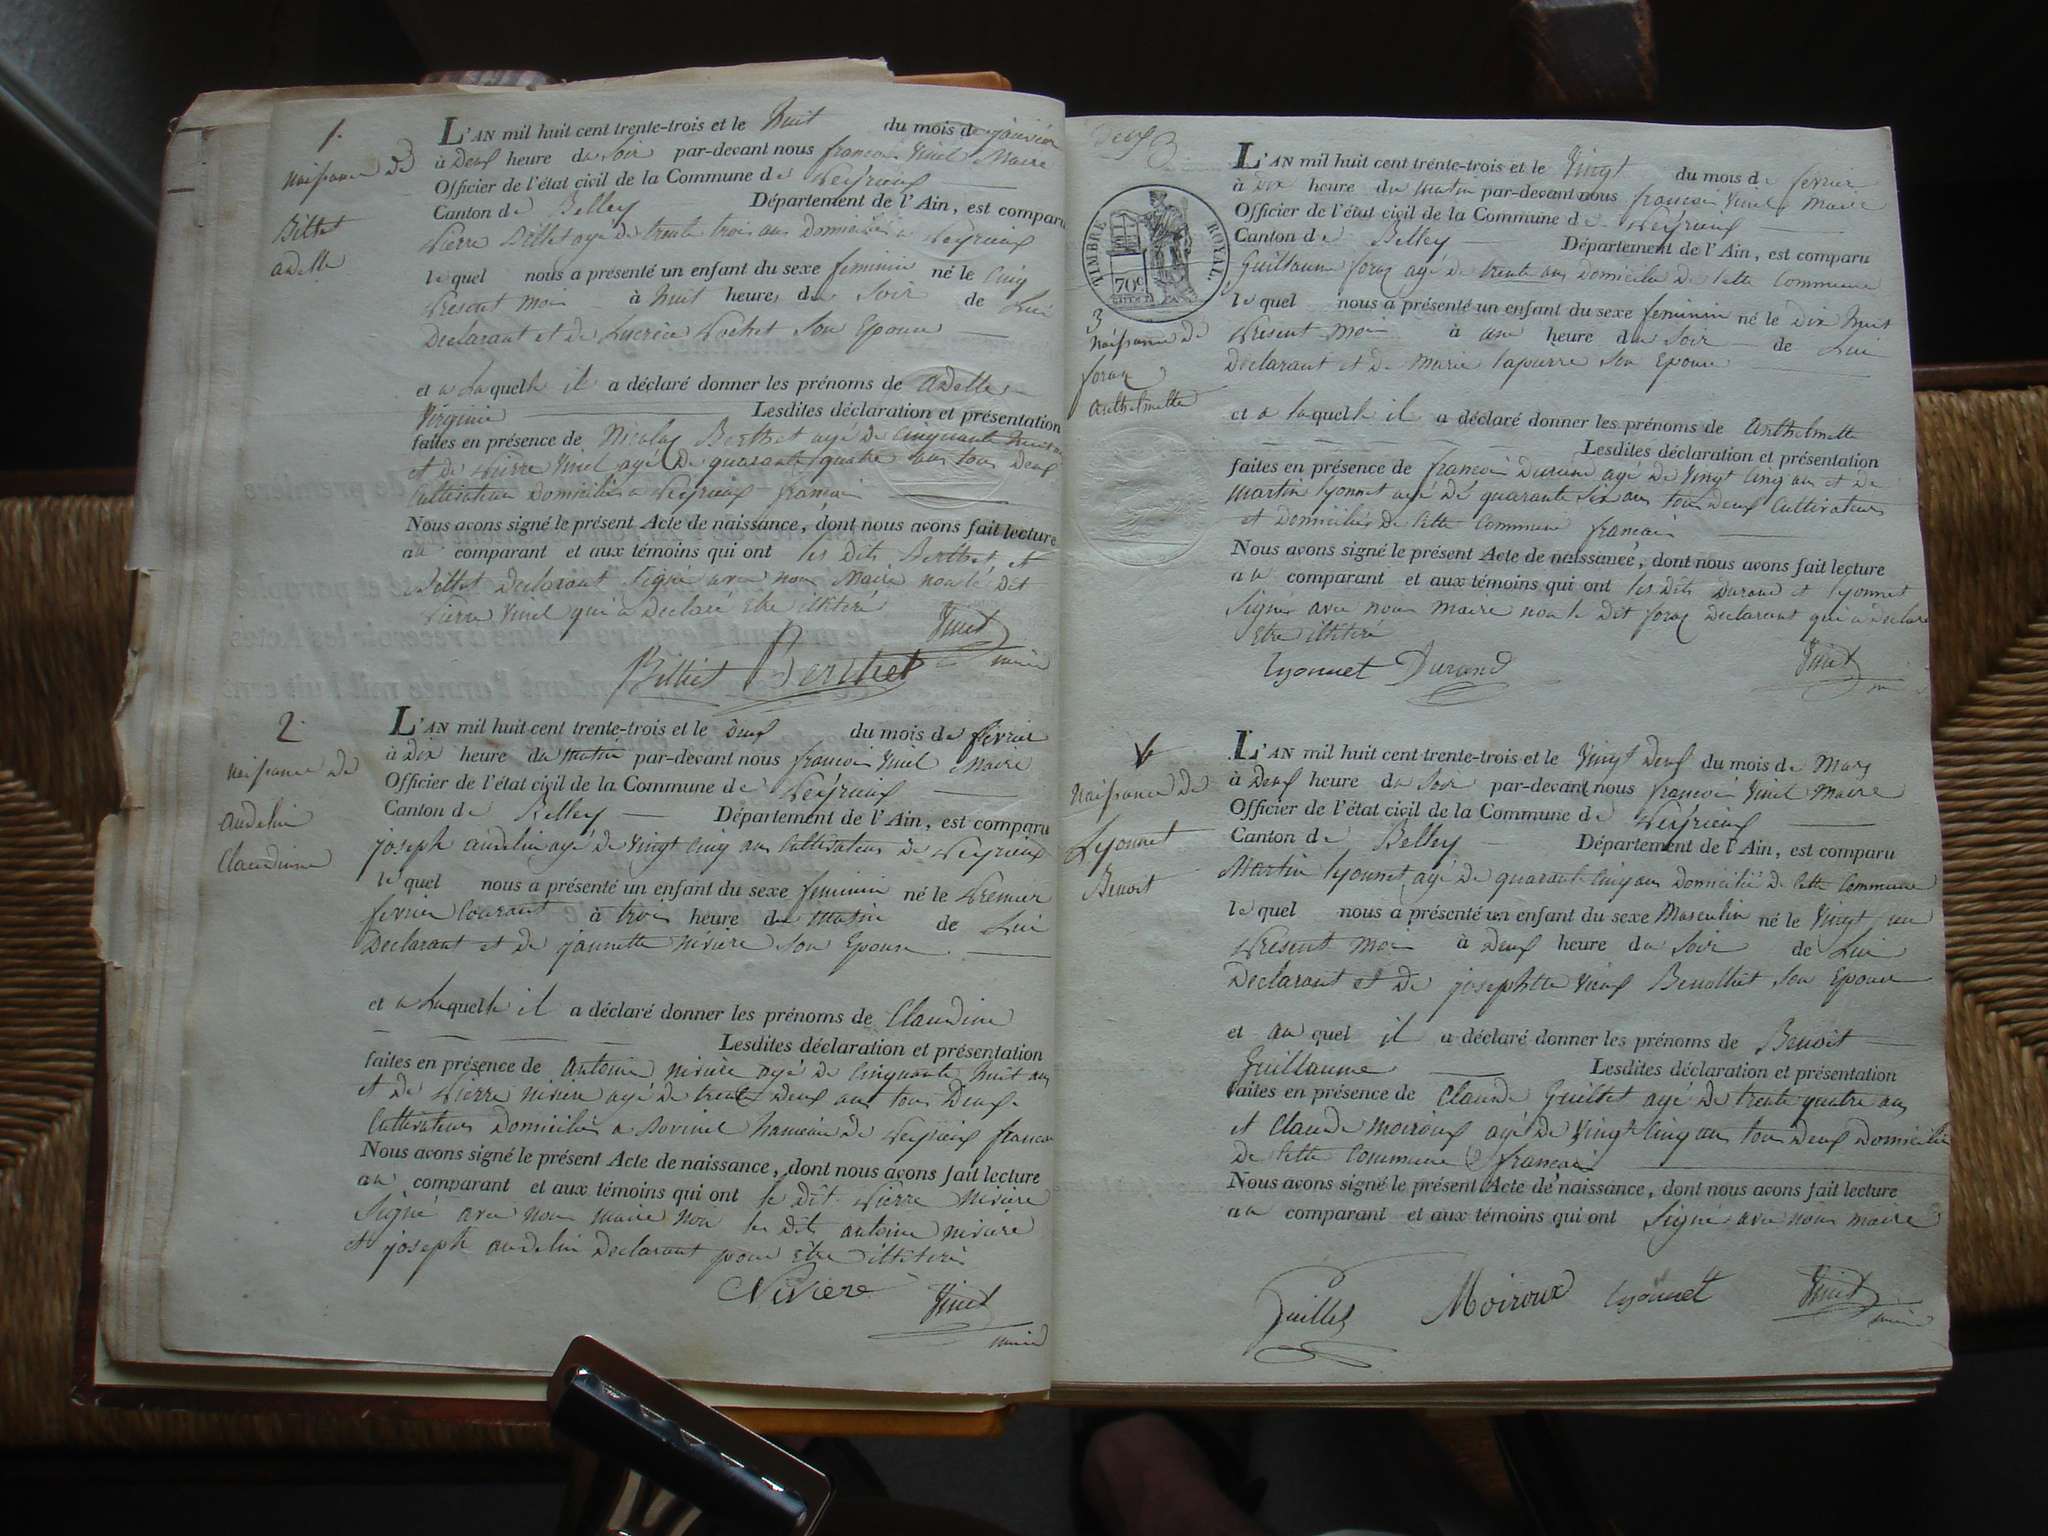 1.
Naissance de
Billet
adelle
L'AN mil huit cent trente-trois et le huit du mois de janvier
à Deux heure du soir par-devant nous françois Vinet Maire
Officier de l'état civil de la Commune de Peyrieux
Canton de Belley Département de l'Ain, est comparu
Pierre Billet agé de trente trois ans Domicilié a Peyrieux
le quel nous a présenté un enfant du sexe feminin né le cinq
Present mois à huit heures du Soir de Lui
Declarant et de Lucrèce Pochet Son Epouse
et a Laquelle il a déclaré donner les prénoms de adelle
Virginie Lesdites déclaration et présentation
faites en présence de Nicolas Berthet agé de Cinquante huit ans
et de Pierre Vinet agé De quarante quatre ans tous Deux
Cultivateurs Domiciliés a Peyrieux francais
Nous avons signé le présent Acte de naissance, dont nous avons fait lecture
au comparant et aux témoins qui ont les dits Berthet et
Billet Declarant Signé avec nous Maire non le Dit
Pierre Vinet qui a Declaré Etre illitéré
Billiet Berthet Vinet maire
2.
Naissance de
andelin
Claudine
L'AN mil huit cent trente-trois et le Deux du mois de fevrier
à Dix heure du matin par-devant nous françois Vinet Maire
Officier de l'état civil de la Commune de Peyrieux
Canton de Belley Département de l'Ain, est comparu
joseph andelin agé de Vingt Cinq ans Cultivateur de Peyrieux
le quel nous a présenté un enfant du sexe feminin né le Premier
fevrier Courant à trois heure du matin de Lui
Declarant et de jannette nivière Son Epouse
et a Laquelle il a déclaré donner les prénoms de Claudine
Lesdites déclaration et présentation
faites en présence de antoine nivière agé de Cinquante huit ans
et de Pierre nivière agé de trente Deux ans tous Deux
Cultivateurs Domiciliés a hameau de Peyrieux francais
Nous avons signé le présent Acte de naissance, dont nous avons fait lecture
au comparant et aux témoins qui ont le dit Pierre nivière
Signé avec nous maire non les dits antoine nivière
et joseph andelin Declarant pour Etre illitéré
Nivière Vinet
maire
Deux
TIMBRE ROYAL
70c
3
Naissance de
foraz
anthelmette
L'AN mil huit cent trente-trois et le Vingt du mois de fevrier
à dix heure du matin par-devant nous françois Vinet, Maire
Officier de l'état civil de la Commune de Peyrieux
Canton de Belley Département de l'Ain, est comparu
Guillaume foraz agé de trente ans Domicilié de Cette Commune
le quel nous a présenté un enfant du sexe feminin né le Dix huit
Present mois à une heure du soir de Lui
Declarant et De Marie lapierre Son Epouse
et a laquelle il a déclaré donner les prénoms de anthelmette
Lesdites déclaration et présentation
faites en présence de françois Durand agé de Vingt Cinq ans et de
Martin lyonnet agé de quarante six ans tous Deux Cultivateurs
et Domiciliés de Cette Commune francais
Nous avons signé le présent Acte de naissance, dont nous avons fait lecture
au comparant et aux témoins qui ont les dits Durand et lyonnet
Signés avec nous maire non le dit foraz Declarant qui a Declaré
Etre illitéré
lyonnet Durand Vinet
4
Naissance de
Lyonnet
Benoit
L'AN mil huit cent trente-trois et le Vingt Deux du mois de Mars
à Deux heure du Soir par-devant nous françois Vinet Maire
Officier de l'état civil de la Commune de Peyrieux
Canton de Belley Département de l'Ain, est comparu
Martin lyonnet agé de quarante Cinq ans Domicilié de Cette Commune
le quel nous a présenté un enfant du sexe Masculin né le Vingt un
Present Mois à Deux heure du Soir de Lui
Declarant et De josephtte Benollet Son Epouse
et au quel il a déclaré donner les prénoms de Benoit
Guillaume Lesdites déclaration et présentation
faites en présence de Claude Guillet agé de trente quatre ans
et Claude Moiroux agé de Vingt Cinq ans tous Deux Domiciliés
de Cette Commune francais
Nous avons signé le présent Acte de naissance, dont nous avons fait lecture
au comparant et aux témoins qui ont Signés avec nous maire
Guillet Moiroux lyonnet Vinet
maire